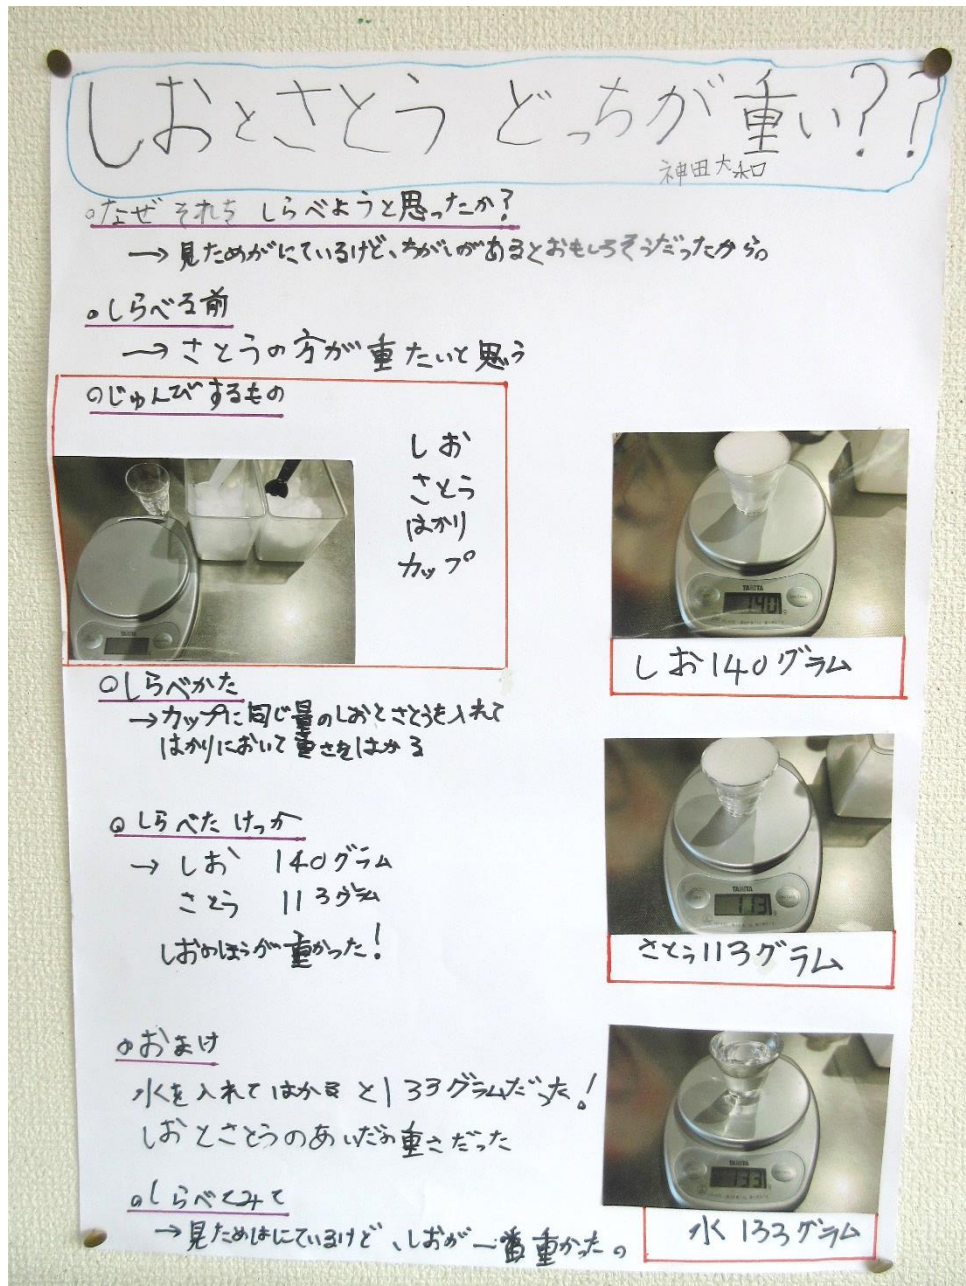 しおとさとう どっちが重い??
神田大和
○なぜ それを しらべようと思ったか?
→ 見ためがにているけど、ちがいがあるとおもしろそうだったから。
○しらべる前
→ さとうの方が重たいと思う
○じゅんびするもの
しお
さとう
はかり
カップ
TANITA
140
しお140グラム
○しらべかた
→カップに同じ量のしおとさとうを入れて
はかりにおいて重さをはかる
○しらべた けっか
→ しお 140グラム
さとう 113グラム
しおのほうが重かった!
TANITA
113
さとう113グラム
○おまけ
水を入れてはかると133グラムだった!
しおとさとうのあいだの重さだった
TANITA
133
水 133グラム
○しらべてみて
→見ためはにているけど、しおが一番重かったの